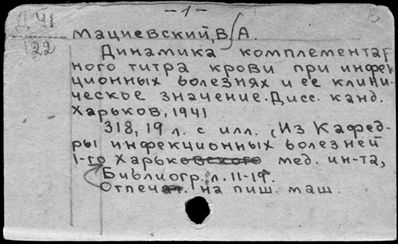 - 1 -
Д 41
122
Мациевский, В. А.
Динамика комплементар
ного титра крови при инфек
ционных болезнях и ее клини-
ческое значение. Дисс. канд.
Харьков, 1941
318, 19 л. с илл. (Из Кафед-
ры инфекционных болезней
1-го Харьковского мед. ин-та,
Библиогр. л. 11-19.
Отпечат. на пиш. маш.